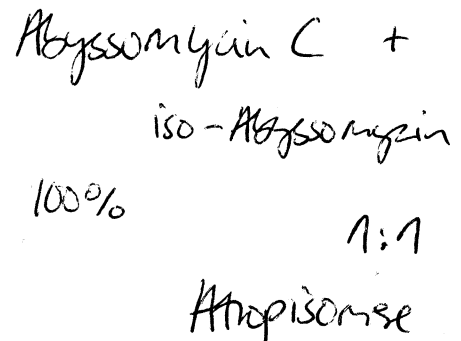 Abyssomycin C +
iso-Abyssomycin
100%
1:1
Atropisomere